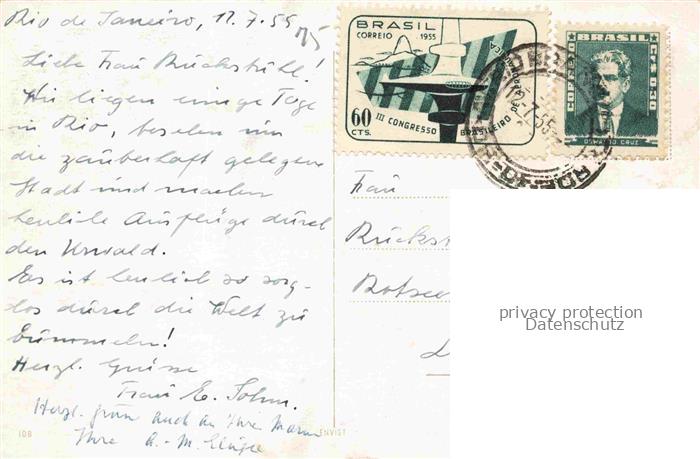 Rio de Janeiro, 11.7.55
Liebe Frau Rückstühl!
Wir liegen einige Tage
in Rio, besehen uns
die zauberhaft gelegene
Stadt und machen
herrliche Ausflüge durch
den Urwald.
Es ist herrlich so sorg-
los durch die Welt zu
bummeln!
Herzl. Grüsse
Frau E. Sohm.
Herzl. Grüsse auch an Ihre Mama
Ihre A.-M.
108
ENVIST
BRASIL
CORREIO 1955
60
CTS.
III CONGRESSO BRASILEIRO DE
BRASIL
CORREIO
OSWALDO CRUZ
7.55
Frau
Rückst
Rotsee
privacy protection
Datenschutz